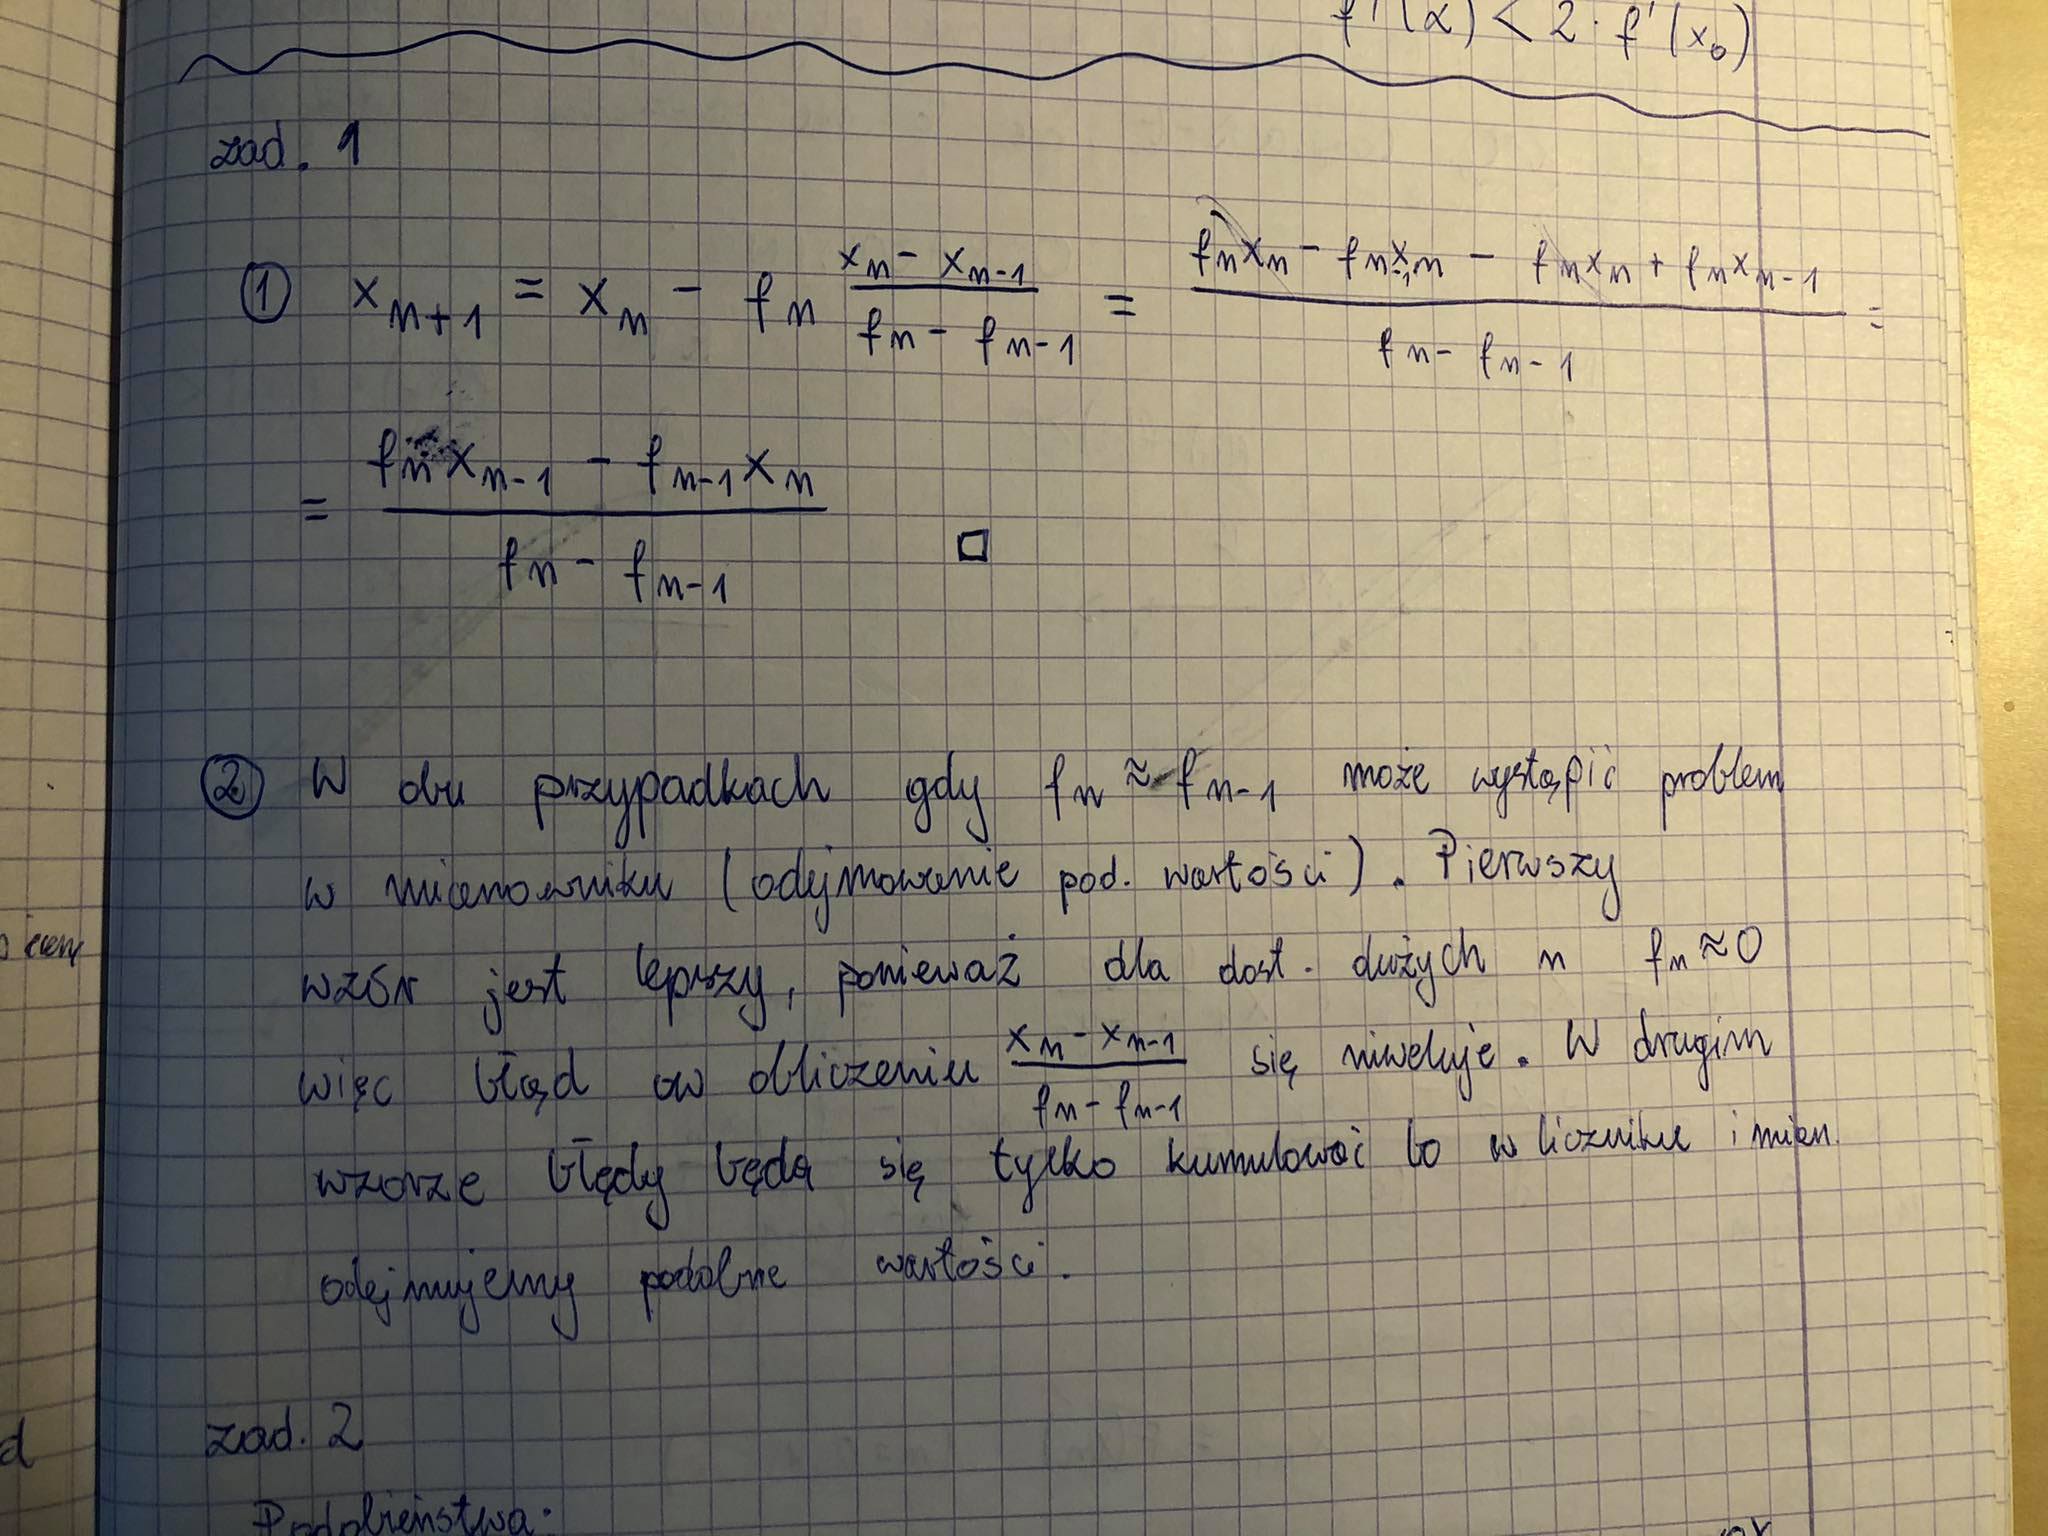 f'(α) < 2 · f'(x₀)
zad. 1
① xₙ₊₁ = xₙ - fₙ (xₙ - xₙ₋₁)/(fₙ - fₙ₋₁) = (fₙxₙ - fₙ₋₁xₙ - fₙxₙ + fₙxₙ₋₁)/(fₙ - fₙ₋₁) =
= (fₙxₙ₋₁ - fₙ₋₁xₙ)/(fₙ - fₙ₋₁) □
② W obu przypadkach gdy fₙ ≈ fₙ₋₁ może wystąpić problem
w mianowniku (odejmowanie pod. wartości). Pierwszy
wzór jest lepszy, ponieważ dla dost. dużych n fₙ ≈ 0
więc błąd w obliczeniu (xₙ - xₙ₋₁)/(fₙ - fₙ₋₁) się niweluje. W drugim
wzorze błędy będą się tylko kumulować bo w liczniku i mian.
odejmujemy podobne wartości.
zad. 2
Podobieństwa: